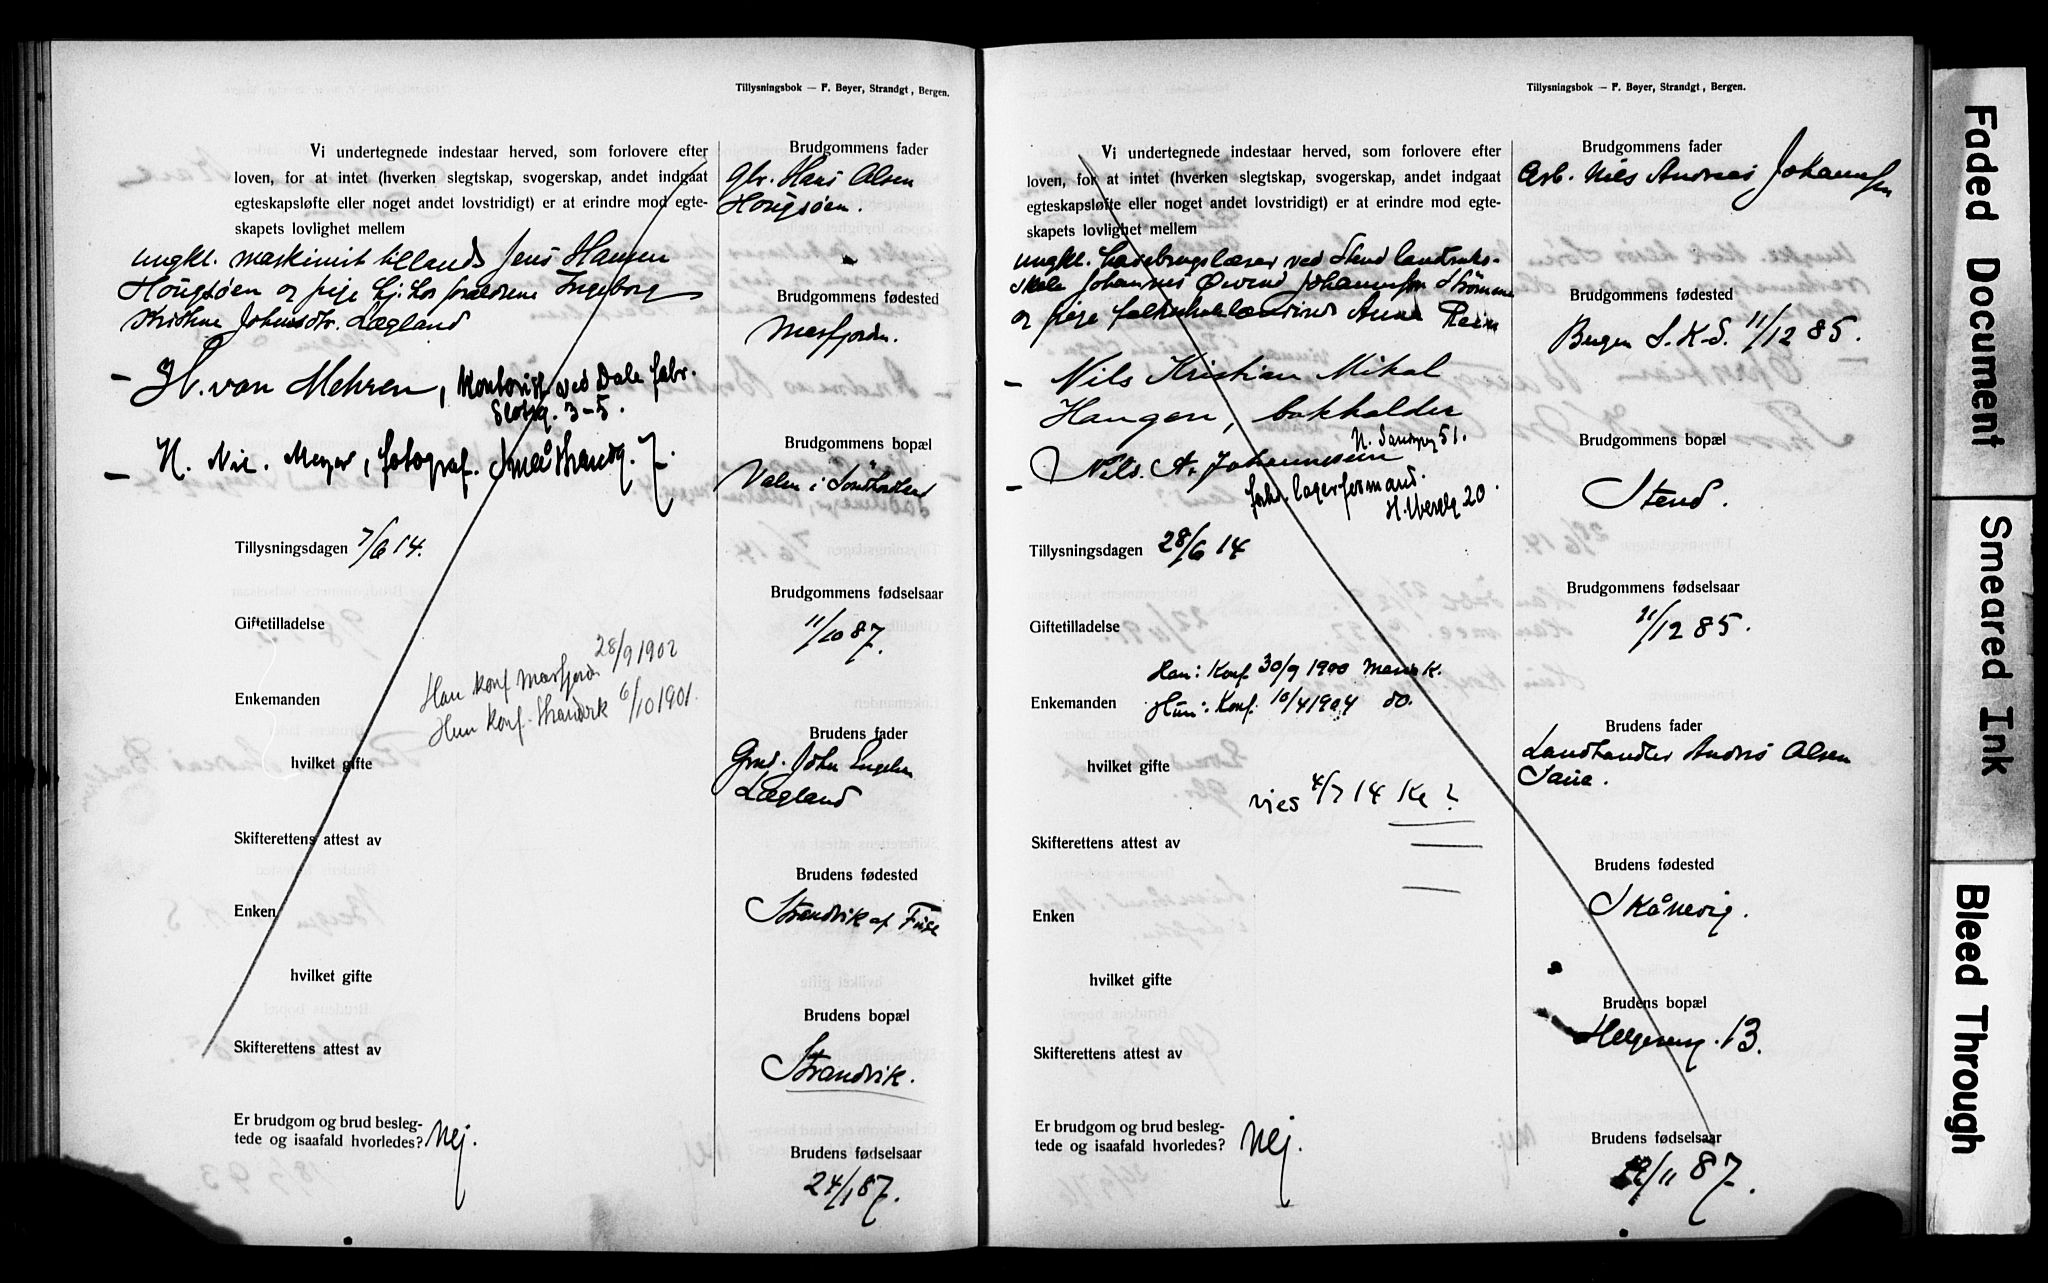 Tillysningsbok — F. Bøyer, Strandgt, Bergen.
Vi undertegnede indestaar herved, som forlovere efter
loven, for at intet (hverken slegtskap, svogerskap, andet indgaat
egteskapsløfte eller noget andet lovstridigt) er at erindre mod egte-
skapets lovlighet mellem
ungkl. maskinist tillands Jens Hansen
Hougsøen og pige hj. hos forældrene Ingeborg
Kristine Johnsdtr. Lægland
– H. von Mehren, kontorist ved Dale fabr.
Slotsg. 3-5.
– H. Nic. Meyer, fotograf. Smaa Strandg. 7.
Tillysningsdagen 7/6 14.
Giftetilladelse
Han konf Masfjord. 28/9 1902
Enkemanden
Hun konf. Strandvik 6/10 1901.
hvilket gifte
Skifterettens attest av
Enken
hvilket gifte
Skifterettens attest av
Er brudgom og brud besleg-
tede og isaafald hvorledes? Nej.
Brudgommens fader
Gbr. Hans Olsen
Hougsøen.
Brudgommens fødested
Masfjorden.
Brudgommens bopæl
Valen i Söndhordland
Brudgommens fødselsaar
11/10 87.
Brudens fader
Grmd. John Engelsen
Lægland
Brudens fødested
Strandvik af Fuse
Brudens bopæl
Strandvik.
Brudens fødselsaar
24/1 87.
Tillysningsbok — F. Bøyer, Strandgt, Bergen.
Vi undertegnede indestaar herved, som forlovere efter
loven, for at intet (hverken slegtskap, svogerskap, andet indgaat
egteskapsløfte eller noget andet lovstridigt) er at erindre mod egte-
skapets lovlighet mellem
ungkl. havebrugslærer ved Stend landbruks-
skole Johannes Øivind Johannessen Strømme
og pige folkeskolelærerinde Anna
– Nils Kristian Mikal
Haugen, bokholder
N. Sandveg 51.
– Nils. A. Johannesen
forh. lagerformand.
20.
Tillysningsdagen 28/6 14
Giftetilladelse
Han: Konf 30/9 1900 Mariæ k.
Enkemanden Hun: Konf. 10/4 1904 do.
hvilket gifte
vies 4/7 14 Kl ?
Skifterettens attest av
Enken
hvilket gifte
Skifterettens attest av
Er brudgom og brud besleg-
tede og isaafald hvorledes? Nej.
Brudgommens fader
Arb. Nils Andreas Johannesen
Brudgommens fødested
Bergen S.K.S. 11/12 85.
Brudgommens bopæl
Stend.
Brudgommens fødselsaar
11/12 85.
Brudens fader
Landhandler Andres Olsen
Brudens fødested
Skånevig.
Brudens bopæl
Helgesens. 13.
Brudens fødselsaar
/11 87.
Faded Document
Smeared Ink
Bleed Through